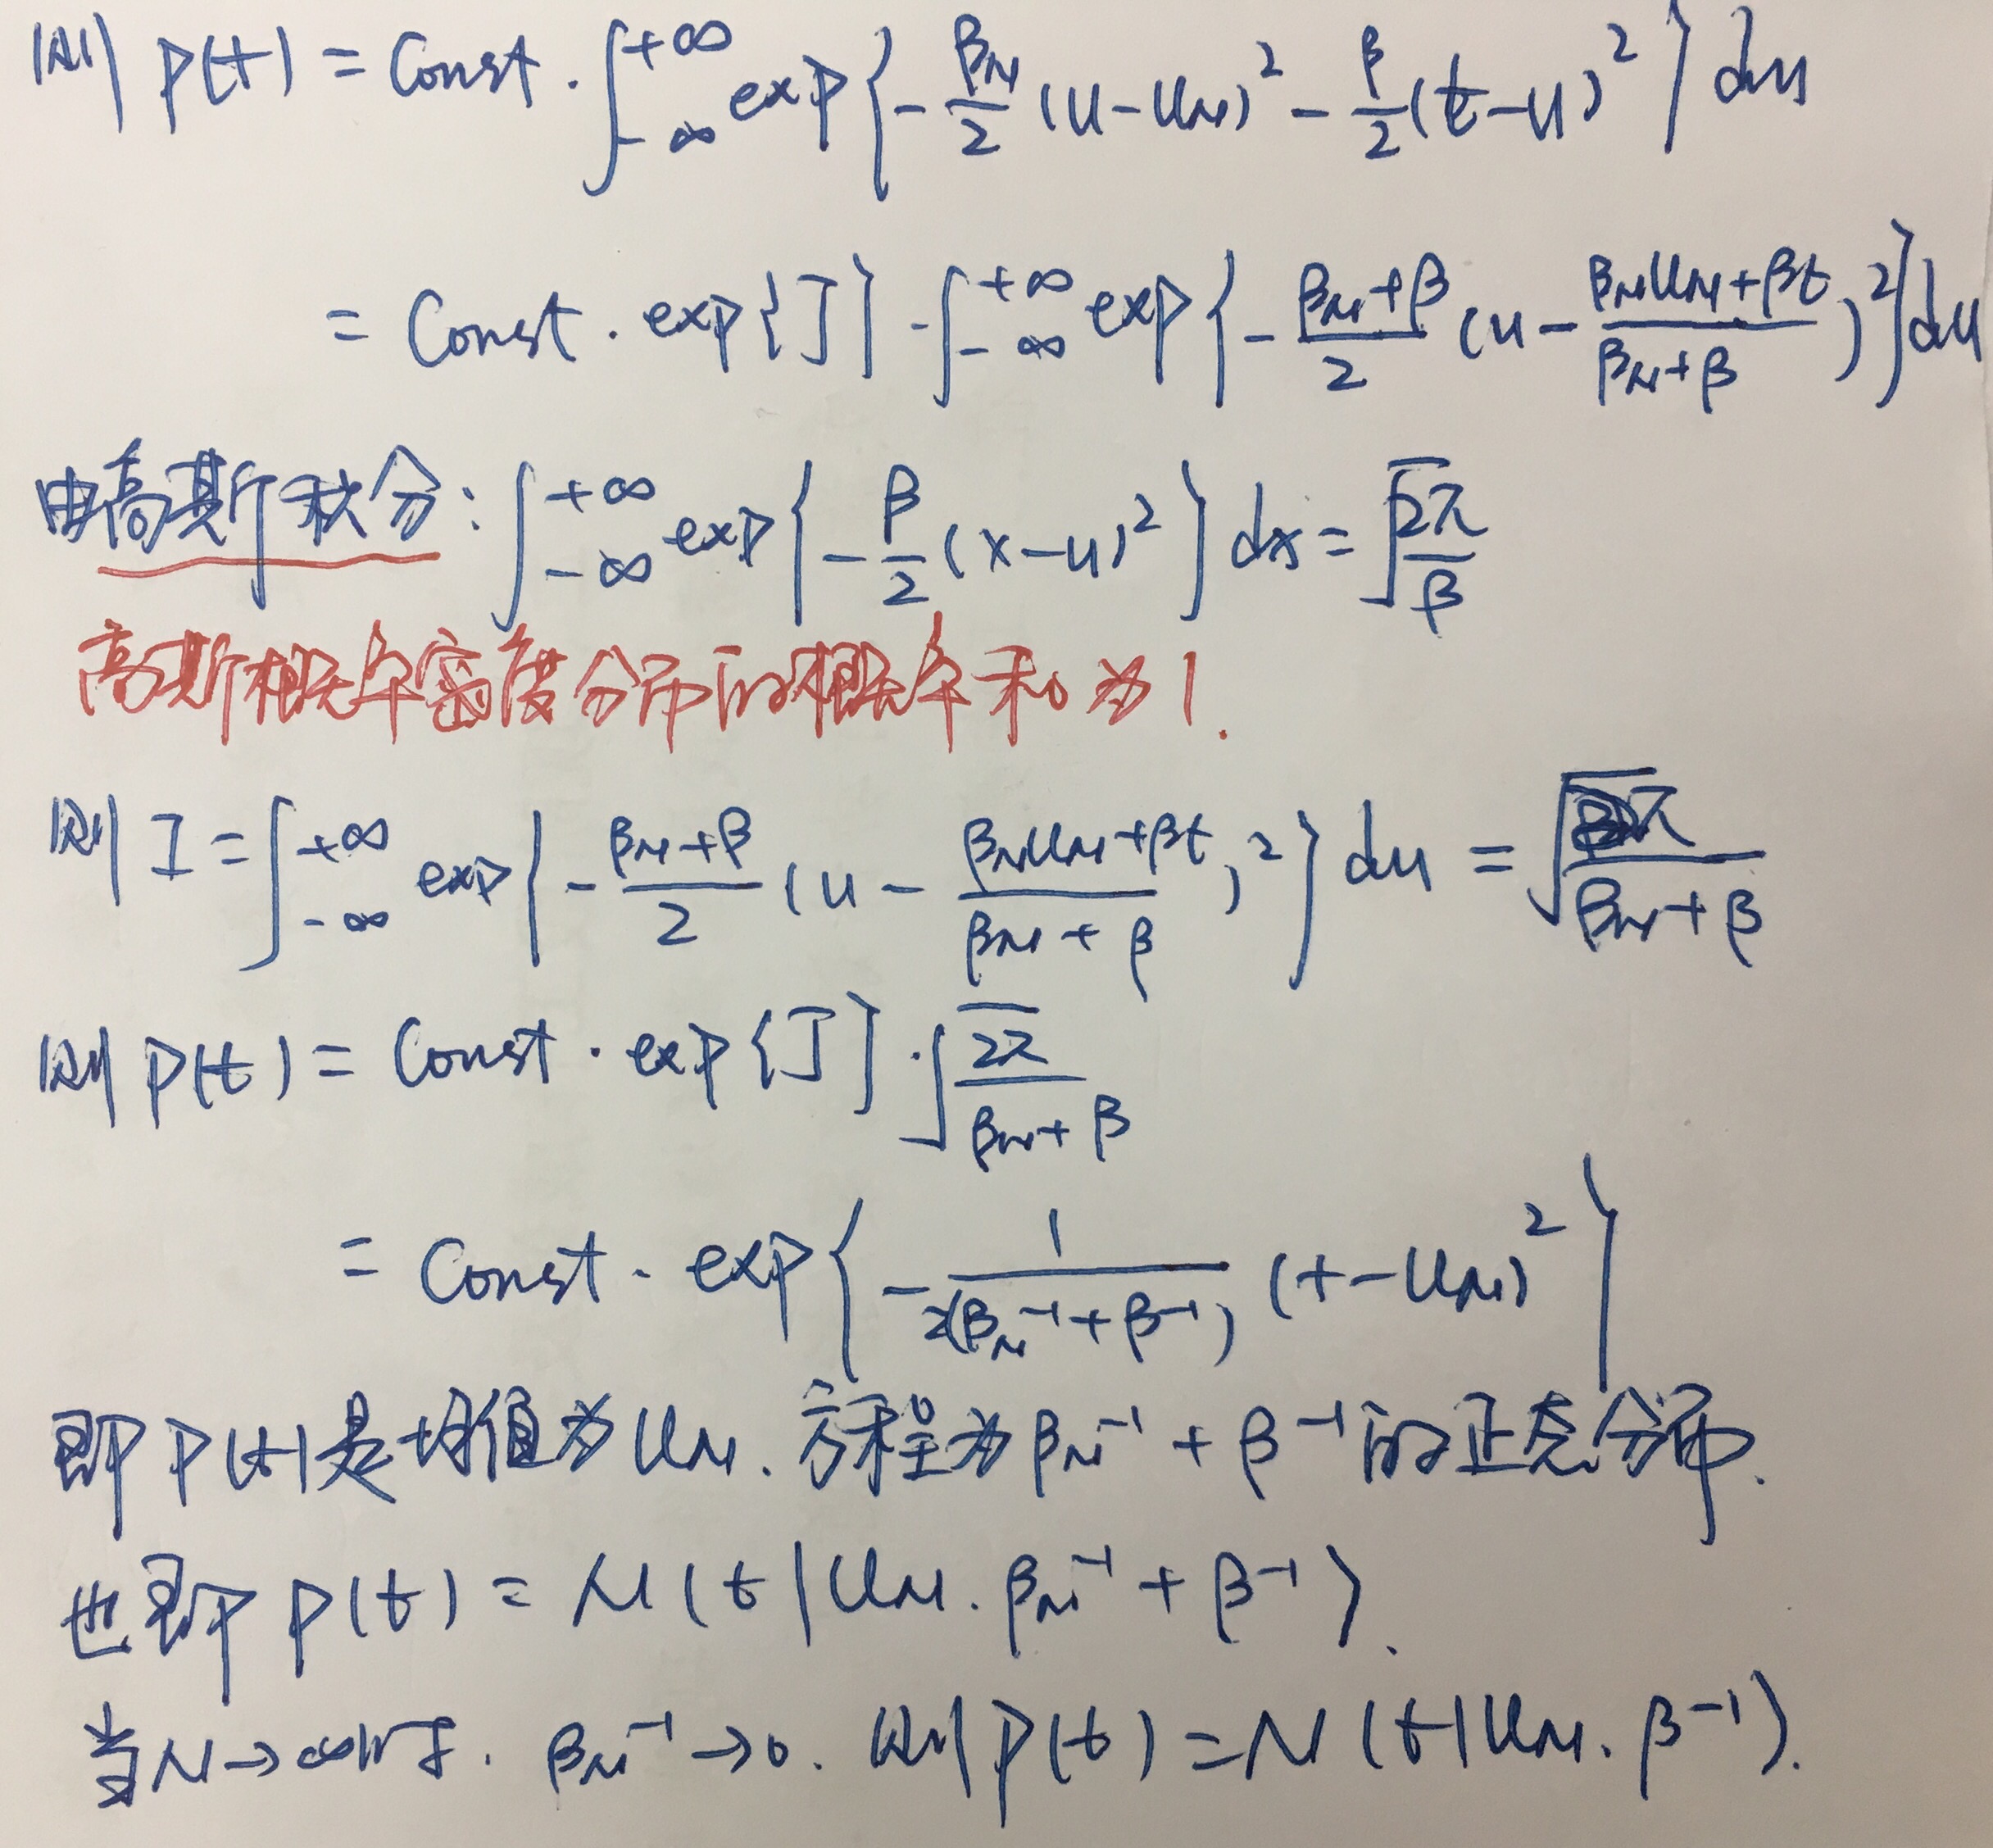 则 P(t) = Const · ∫_{-∞}^{+∞} exp{ -\frac{β_N}{2} (u-u_N)^2 - \frac{β}{2} (t-u)^2 } du
= Const · exp{J} · ∫_{-∞}^{+∞} exp{ -\frac{β_N+β}{2} (u - \frac{β_N u_N+βt}{β_N+β})^2 } du
由高斯积分: ∫_{-∞}^{+∞} exp{ -\frac{β}{2} (x-u)^2 } dx = \sqrt{\frac{2π}{β}}
高斯概率密度分布的概率和为1.
则 I = ∫_{-∞}^{+∞} exp{ -\frac{β_N+β}{2} (u - \frac{β_N u_N+βt}{β_N+β})^2 } du = \sqrt{\frac{2π}{β_N+β}}
则 P(t) = Const · exp{J} · \sqrt{\frac{2π}{β_N+β}}
= Const · exp{ -\frac{1}{2(β_N^{-1}+β^{-1})} (t-u_N)^2 }
即 P(t) 是均值为 u_N. 方程为 β_N^{-1} + β^{-1} 的正态分布.
也即 P(t) = N(t|u_N. β_N^{-1} + β^{-1}).
当 N→∞时. β_N^{-1}→0. 则 P(t) = N(t|u_N. β^{-1}).